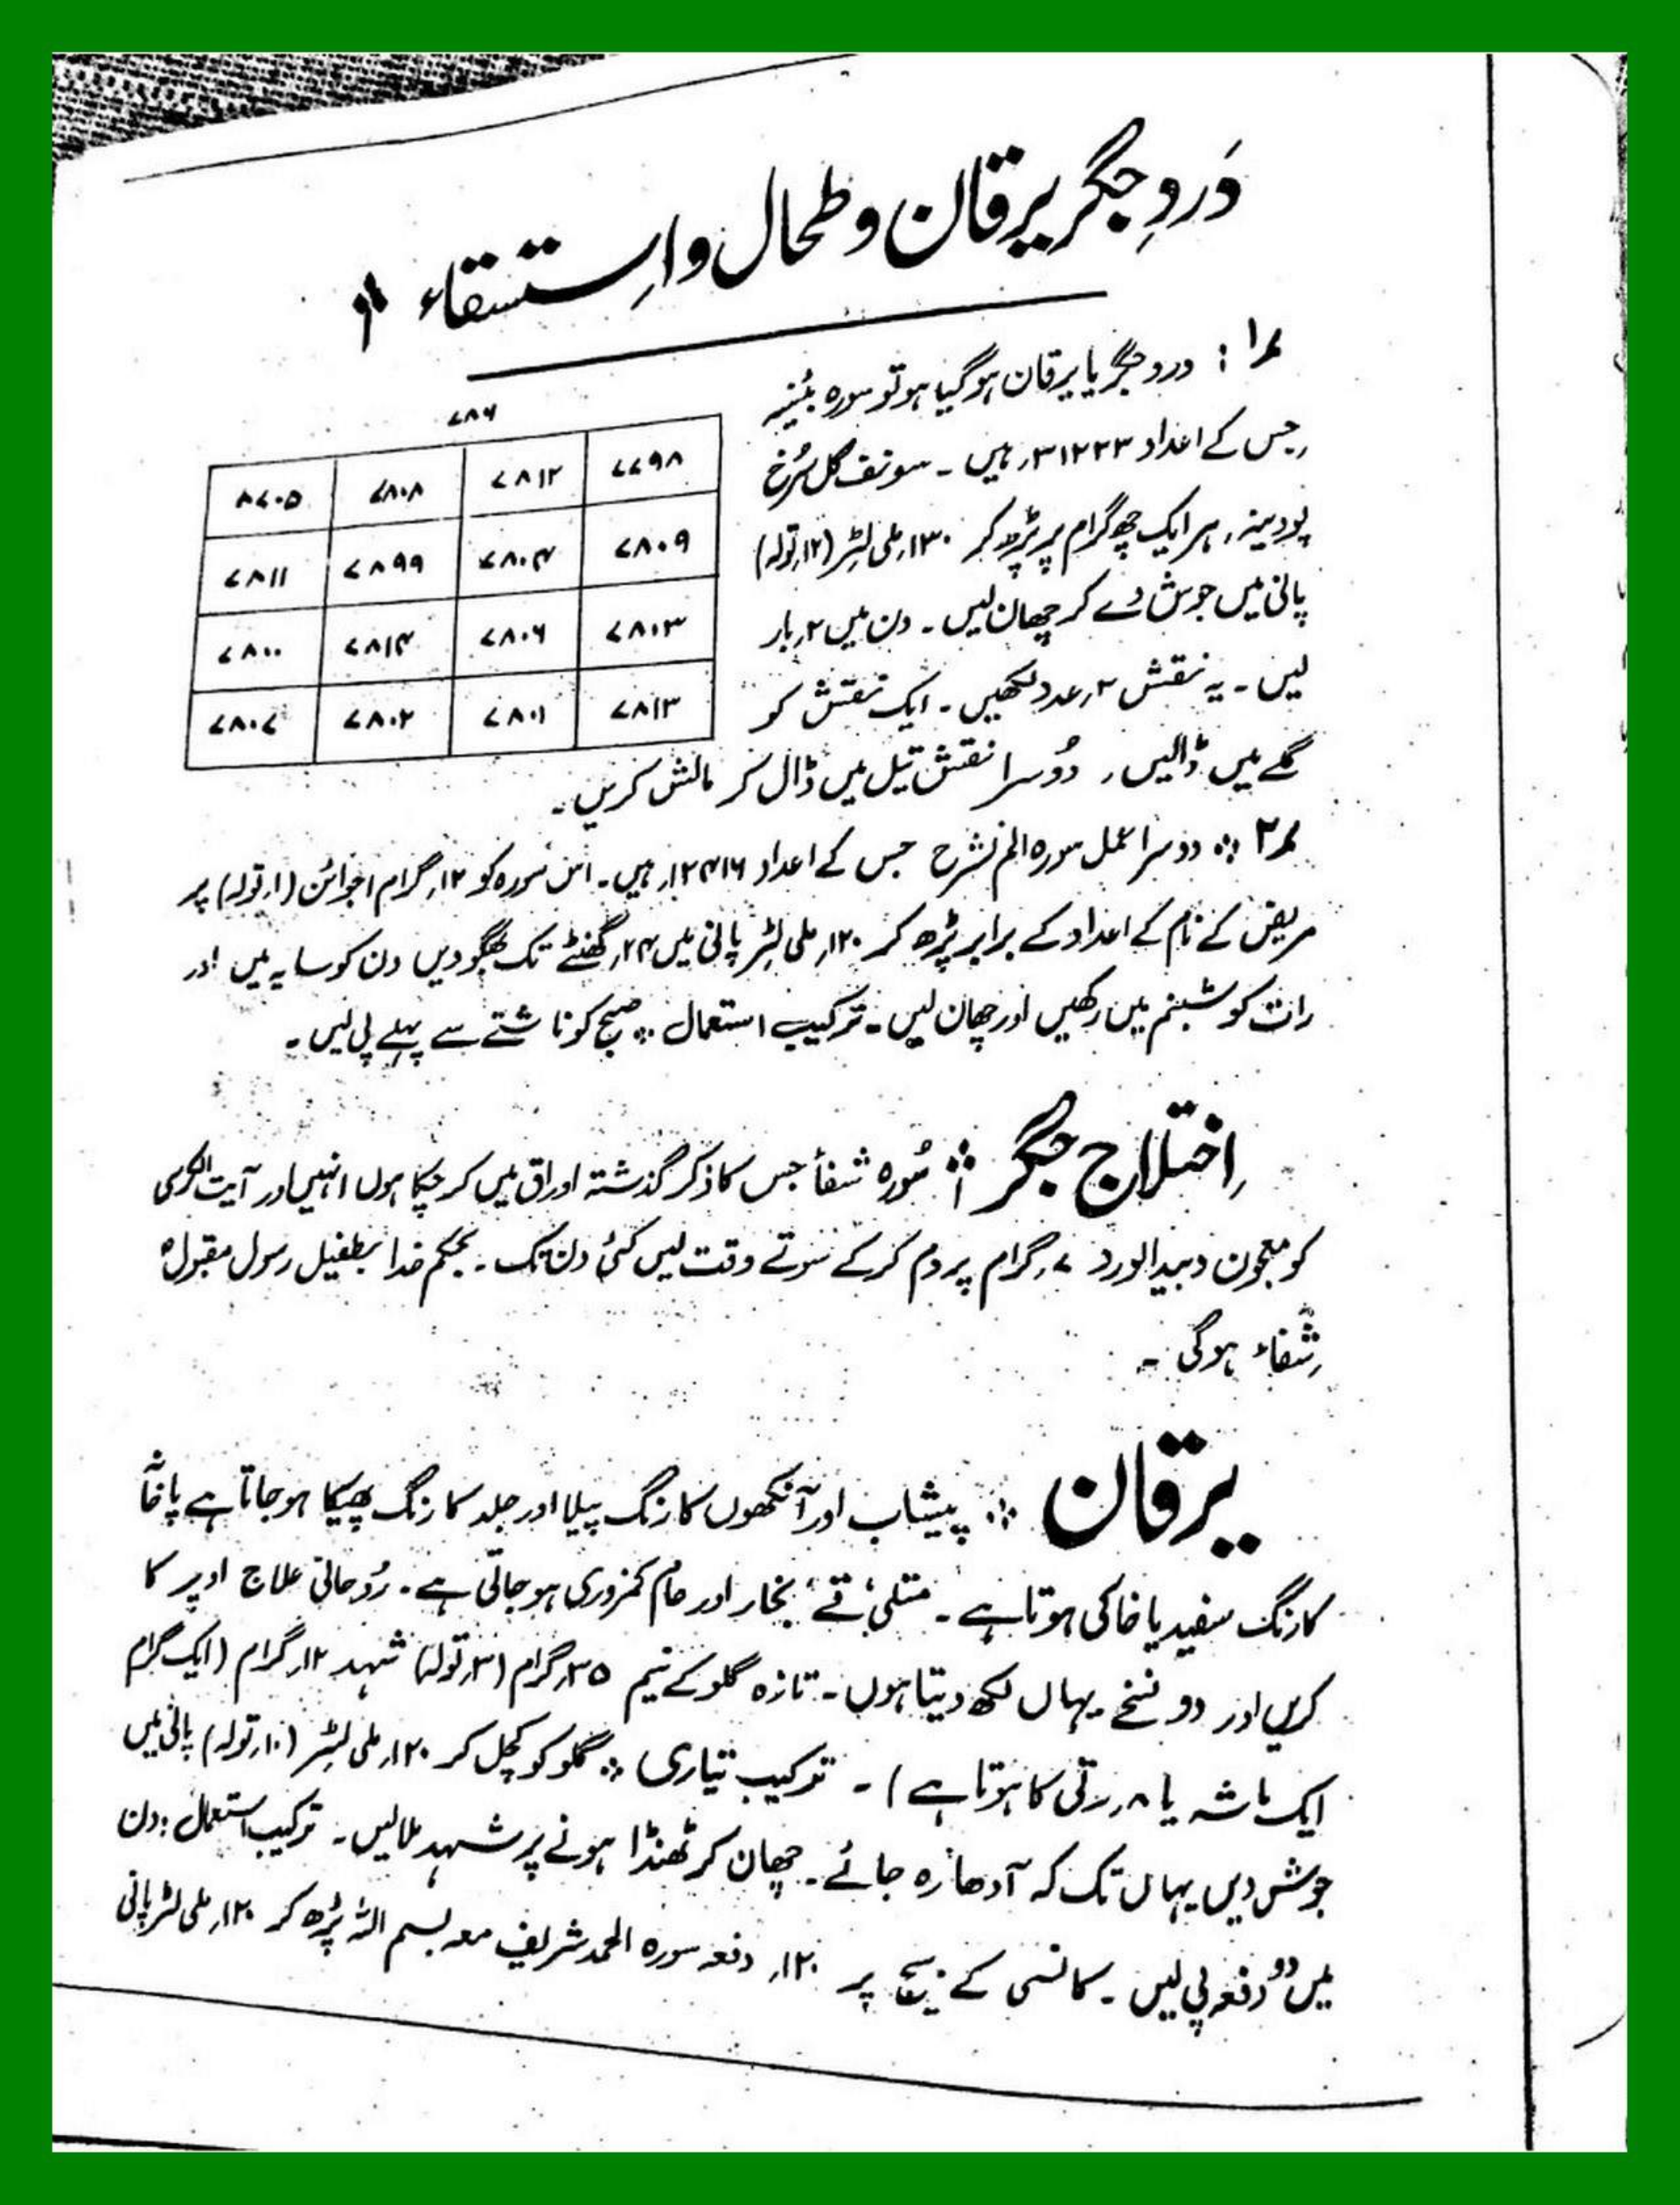 دَردِ جگر یرقان و طحال و اِستسقاء
۱؎ : درد جگر یا یرقان ہو گیا ہو تو سورہ بیّنہ
جس کے اعداد ۳۱۲۲۳ ہیں ۔ سونف گل سُرخ
پودینہ، ہر ایک چھ گرام پر پڑھ کر ۱۳۰ ملی لٹر (۱۲ تولہ)
پانی میں جوش دے کر چھان لیں ۔ دن میں ۲ بار
لیں ۔ یہ نقش ۲ عدد لکھیں ۔ ایک نقش کو
گلے میں ڈالیں ، دُوسرا نقش تیل میں ڈال کر مالش کریں ۔
۷۸۶
۷۷۹۸ ۷۸۱۲ ۷۸۰۸ ۸۷۰۵
۷۸۰۹ ۷۸۰۴ ۷۸۹۹ ۷۸۱۱
۷۸۰۳ ۷۸۰۶ ۷۸۱۴ ۷۸۰۰
۷۸۱۳ ۷۸۰۱ ۷۸۰۲ ۷۸۰۷
۲؎ :: دوسرا عمل سورہ الم نشرح جس کے اعداد ۱۲۴۱۶ ہیں ۔ اس سورہ کو ۱۲ گرام اجوائن (۱ تولہ) پر
مریض کے نام کے اعداد کے برابر پڑھ کر ۱۲۰ ملی لٹر پانی میں ۲۴ گھنٹے تک بھگو دیں دن کو سایہ میں اور
رات کو شبنم میں رکھیں اور چھان لیں ۔ ترکیب استعمال :: صبح کو ناشتے سے پہلے پی لیں ۔
اِختلاج جگر :: سُورہ شفأ جس کا ذکر گذشتہ اوراق میں کر چکا ہوں انہیں اور آیت الکرسی
کو معجون دبیدالورد ۷ گرام پر دم کر کے سوتے وقت لیں کئی دن تک ۔ بحکم خدا بطفیل رسول مقبول
شِفاء ہوگی ۔
یرقان :: پیشاب اور آنکھوں کا رنگ پیلا اور جلد کا رنگ پھیکا ہو جاتا ہے پاخانہ
کا رنگ سفید یا خاکی ہوتا ہے ۔ متلی، قے، بخار اور عام کمزوری ہو جاتی ہے ۔ رُوحانی علاج اوپر کا
کریں اور دو نسخے یہاں لکھ دیتا ہوں ۔ تازہ گلو کے نیم ۳۵ گرام (۳ تولہ) شہد ۱۲ گرام (ایک گرام
ایک ماشہ یا ۸ رتی کا ہوتا ہے) ۔ ترکیب تیاری :: گلو کو کچل کر ۱۲۰ ملی لٹر (۱۰ تولہ) پانی میں
جوش دیں یہاں تک کہ آدھا رہ جائے ۔ چھان کر ٹھنڈا ہونے پر شہد ملا لیں ۔ ترکیب استعمال : دن
میں دو دفعہ پی لیں ۔ کاسنی کے بیج پر ۱۲۰ دفعہ سورہ الحمد شریف معہ بسم اللہ پڑھ کر ۱۲۰ ملی لٹر پانی